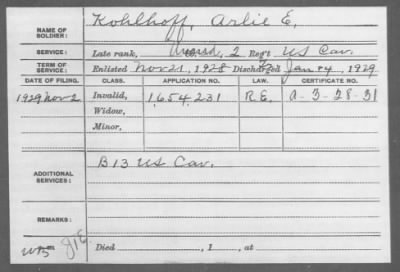 NAME OF SOLDIER: Kohlhoff, Arlie E.
SERVICE: Late rank, 2 Regt. US Cav.
TERM OF SERVICE: Enlisted Nov 21, 1928 Discharged Jan 4, 1929
DATE OF FILING. CLASS. APPLICATION NO. LAW. CERTIFICATE NO.
1929 Nov 2 Invalid, 1654231 R.E. A-3-28-31
Widow,
Minor,
ADDITIONAL SERVICES: B 13 US Cav.
REMARKS:
Died , 1 , at